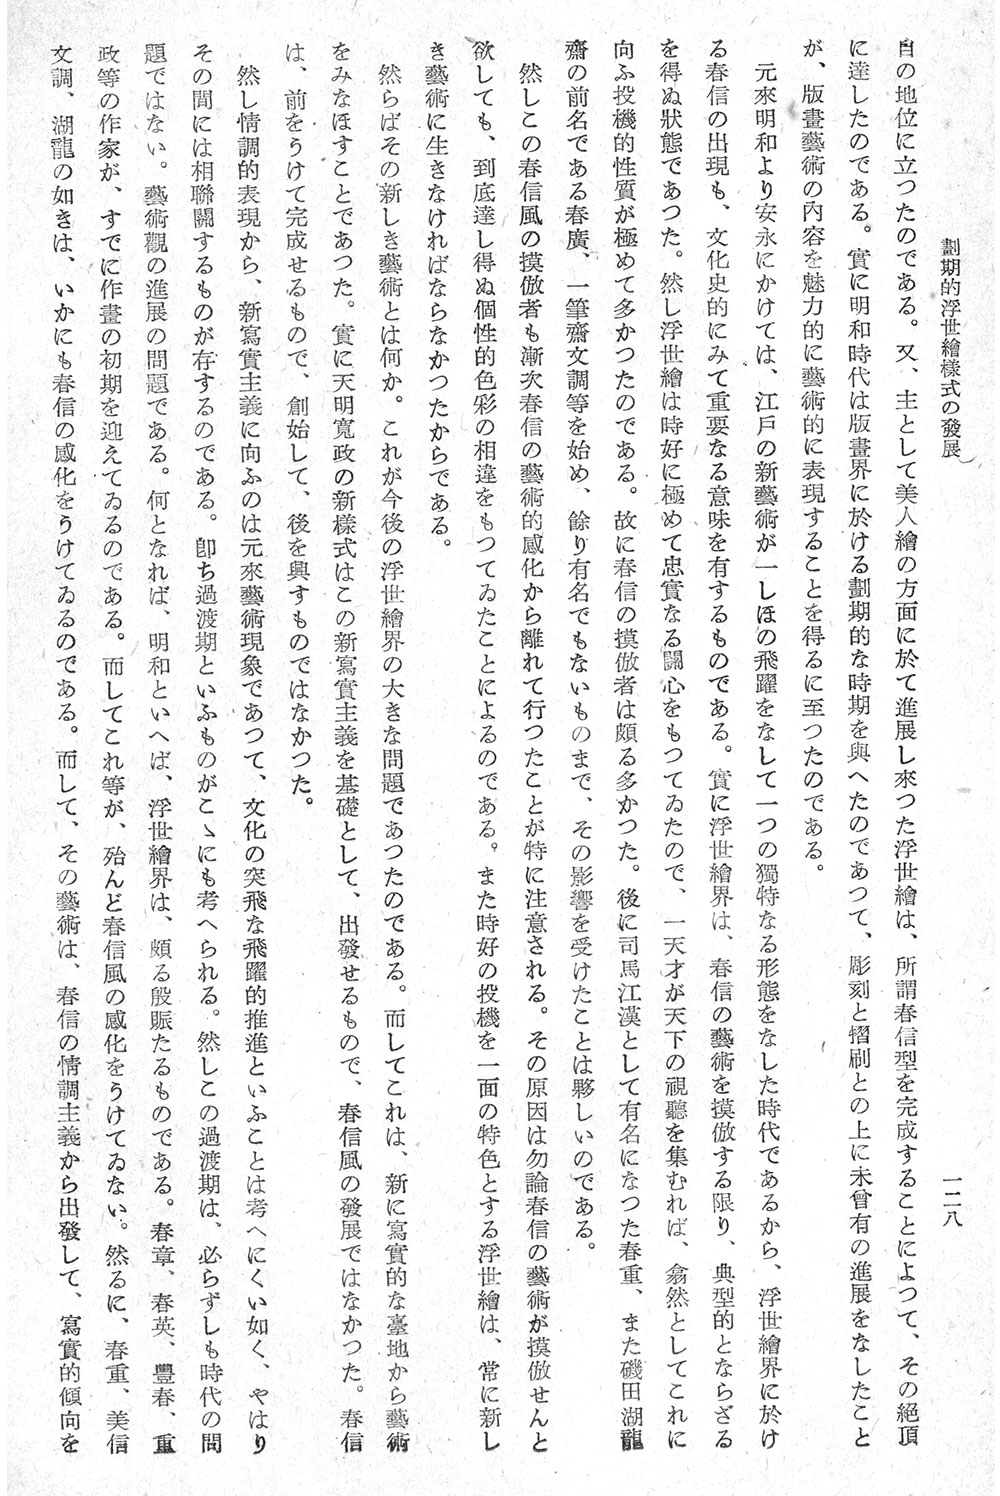 劃期的浮世繪樣式の發展
一二八
自の地位に立つたのである。又、主として美人繪の方面に於て進展し來つた浮世繪は、所謂春信型を完成することによつて、その絕頂
に達したのである。實に明和時代は版畫界に於ける劃期的な時期を與へたのであつて、彫刻と摺刷との上に未曾有の進展をなしたこと
が、版畫藝術の內容を魅力的に藝術的に表現することを得るに至つたのである。
元來明和より安永にかけては、江戶の新藝術が一しほの飛躍をなして一つの獨特なる形態をなした時代であるから、浮世繪界に於け
る春信の出現も、文化史的にみて重要なる意味を有するものである。實に浮世繪界は、春信の藝術を摸倣する限り、典型的とならざる
を得ぬ狀態であつた。然し浮世繪は時好に極めて忠實なる關心をもつてゐたので、一天才が天下の視聽を集むれば、翕然としてこれに
向ふ投機的性質が極めて多かつたのである。故に春信の摸倣者は頗る多かつた。後に司馬江漢として有名になつた春重、また磯田湖龍
齋の前名である春廣、一筆齋文調等を始め、餘り有名でもないものまで、その影響を受けたことは夥しいのである。
然しこの春信風の摸倣者も漸次春信の藝術的感化から離れて行つたことが特に注意される。その原因は勿論春信の藝術が摸倣せんと
欲しても、到底達し得ぬ個性的色彩の相違をもつてゐたことによるのである。また時好の投機を一面の特色とする浮世繪は、常に新し
き藝術に生きなければならなかつたからである。
然らばその新しき藝術とは何か。これが今後の浮世繪界の大きな問題であつたのである。而してこれは、新に寫實的な臺地から藝術
をみなほすことであつた。實に天明寬政の新樣式はこの新寫實主義を基礎として、出發せるもので、春信風の發展ではなかつた。春信
は、前をうけて完成せるもので、創始して、後を興すものではなかつた。
然し情調的表現から、新寫實主義に向ふのは元來藝術現象であつて、文化の突飛な飛躍的推進といふことは考へにくい如く、やはり
その間には相聯關するものが存するのである。卽ち過渡期といふものがこゝにも考へられる。然しこの過渡期は、必らずしも時代の問
題ではない。藝術觀の進展の問題である。何となれば、明和といへば、浮世繪界は、頗る殷賑たるものである。春章、春英、豐春、重
政等の作家が、すでに作畫の初期を迎えてゐるのである。而してこれ等が、殆んど春信風の感化をうけてゐない。然るに、春重、美信
文調、湖龍の如きは、いかにも春信の感化をうけてゐるのである。而して、その藝術は、春信の情調主義から出發して、寫實的傾向を